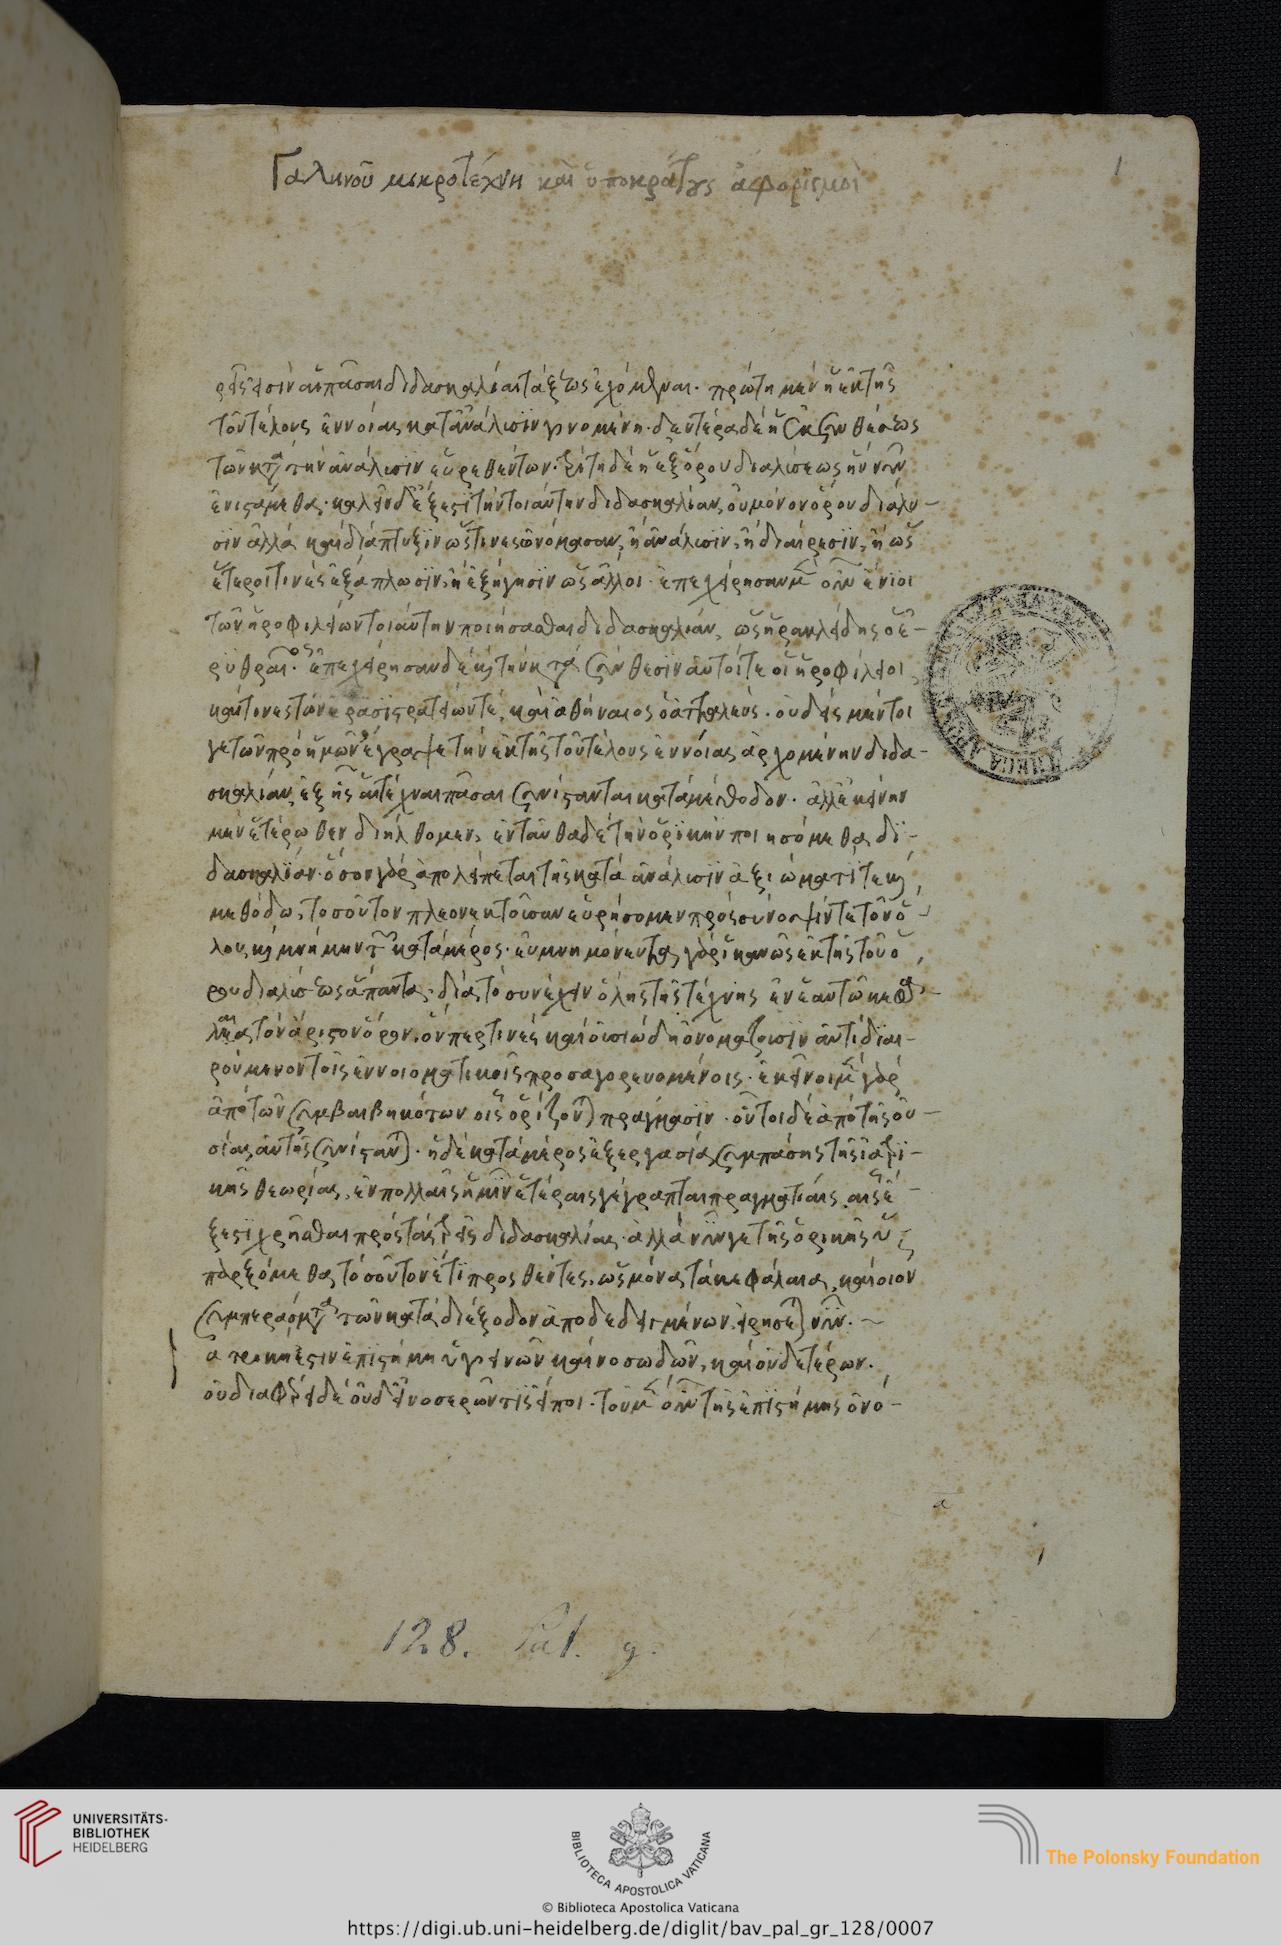 Γαληνοῦ μικροτέχνη καὶ ὑποκράτους ἀφορισμοὶ
1
ρεῖς εἰσὶν αἱ πᾶσαι διδασκαλίαι τάξεως ἐχόμεναι. πρώτη μὲν ἡ ἐκ τῆς
τοῦ τέλους ἐννοίας κατ' ἀνάλισιν γινομένη. δευτέρα δὲ ἡ ἐκ συνθέσεως
τῶν κατὰ τὴν ἀνάλισιν εὑρεθέντων. τρίτη δὲ ἡ ἐξ ὅρου διαλίσεως ἣν νῦν
ἐνιστάμεθα. καλεῖν δ' ἔξεστι τὴν τοιαύτην διδασκαλίαν, οὐ μόνον ὅρου διάλυ-
σιν ἀλλὰ καὶ διάπτυξιν ὥς τινες ὠνόμασαν, ἢ ἀνάλισιν, ἢ διαίρεσιν, ἢ ὡς
ἕτεροί τινες ἐξάπλωσιν, ἢ ἐξήγησιν ὡς ἄλλοι. ἐπεχείρησαν μὲν οὖν ἔνιοι
τῶν ἡροφιλείων τοιαύτην ποιήσασθαι διδασκαλίαν, ὡς ἡρακλείδης ὁ ἐ-
ρυθραῖος. ἐπεχείρησαν δὲ καὶ τὴν κατὰ σύνθεσιν αὐτοί τε οἱ ἡροφίλειοι,
καί τινες τῶν ἐρασιστρατείων τὲ, καὶ ἀθήναιος ὁ ἀτταλεύς. οὐδεὶς μέντοι
γε τῶν πρὸ ἡμῶν ἔγραψε τὴν ἐκ τῆς τοῦ τέλους ἐννοίας ἀρχομένην διδα-
σκαλίαν, ἐξ ἧς αἱ τέχναι πᾶσαι συνίστανται κατὰ μέθοδον. ἀλλ' ἐκείνην
μὲν ἑτέρωθεν διήλθομεν, ἐνταῦθα δὲ τὴν ὁρικὴν ποιησόμεθα δι-
δασκαλίαν. ὅσον γὰρ ἀπολείπεται τῆς κατὰ ἀνάλισιν ἀξιώματί τε καὶ
μεθόδω, τοσοῦτον πλεονεκτοῦσαν εὑρήσομεν πρὸς σύνοψίν τε τοῦ ὅ-
λου, καὶ μνήμην τῶν κατὰ μέρος. εὐμνημόνευτα γὰρ ἱκανῶς ἐκ τῆς τοῦ ὅ-
ρου διαλίσεως ἅπαντα. διὰ τὸ συνέχειν ὅλης τῆς τέχνης ἐν ἑαυτῶ κεφά-
λαια τὸν ἄριστον ὅρον. ὅν πέρ τινες καὶ οὐσιώδη ὀνομάζουσιν ἀντιδιαι-
ρούμενον τοῖς ἐννοιοματικοῖς προσαγορευομένοις. ἐκεῖνοι μὲν γὰρ
ἀπὸ τῶν συμβαιβηκότων οἷς ὁρίζονται πράγμασιν. οὗτοι δὲ ἀπὸ τῆς οὐ-
σίας αὐτῆς συνίστανται. ἡ δὲ κατὰ μέρος ἐξεργασία συμπάσης τῆς ἰατρι-
κῆς θεωρίας, ἐν πολλαῖς ἡμῖν ἑτέραις γέγραπται πραγματίαις, αἷς ἔ-
ξεστι χρῆσθαι πρὸς τὰς τρεῖς διδασκαλίας. ἀλλὰ νῦν γε τῆς ὁρικῆς ὑ-
παρξόμεθα τοσοῦτον ἔτι προσθέντες, ὡς μόνα τὰ κεφάλαια, καὶ οἷον
συμπεράσματα τῶν κατὰ διέξοδον ἀποδεδειγμένων, εἰρήσεται νῦν. ~
α τρικη ἐστὶν ἐπιστήμη ὑγιεινῶν καὶ νοσωδῶν, καὶ οὐδετέρων.
οὐ διαφέρει δὲ οὐδ' εἰ νοσερῶν τίς εἴποι. τοῦ μὲν οὖν τῆς ἐπιστήμης ὀνό-
α
1
128. Pal. g.
UNIVERSITÄTS-
BIBLIOTHEK
HEIDELBERG
BIBLIOTECA APOSTOLICA VATICANA
The Polonsky Foundation
© Biblioteca Apostolica Vaticana
https://digi.ub.uni-heidelberg.de/diglit/bav_pal_gr_128/0007